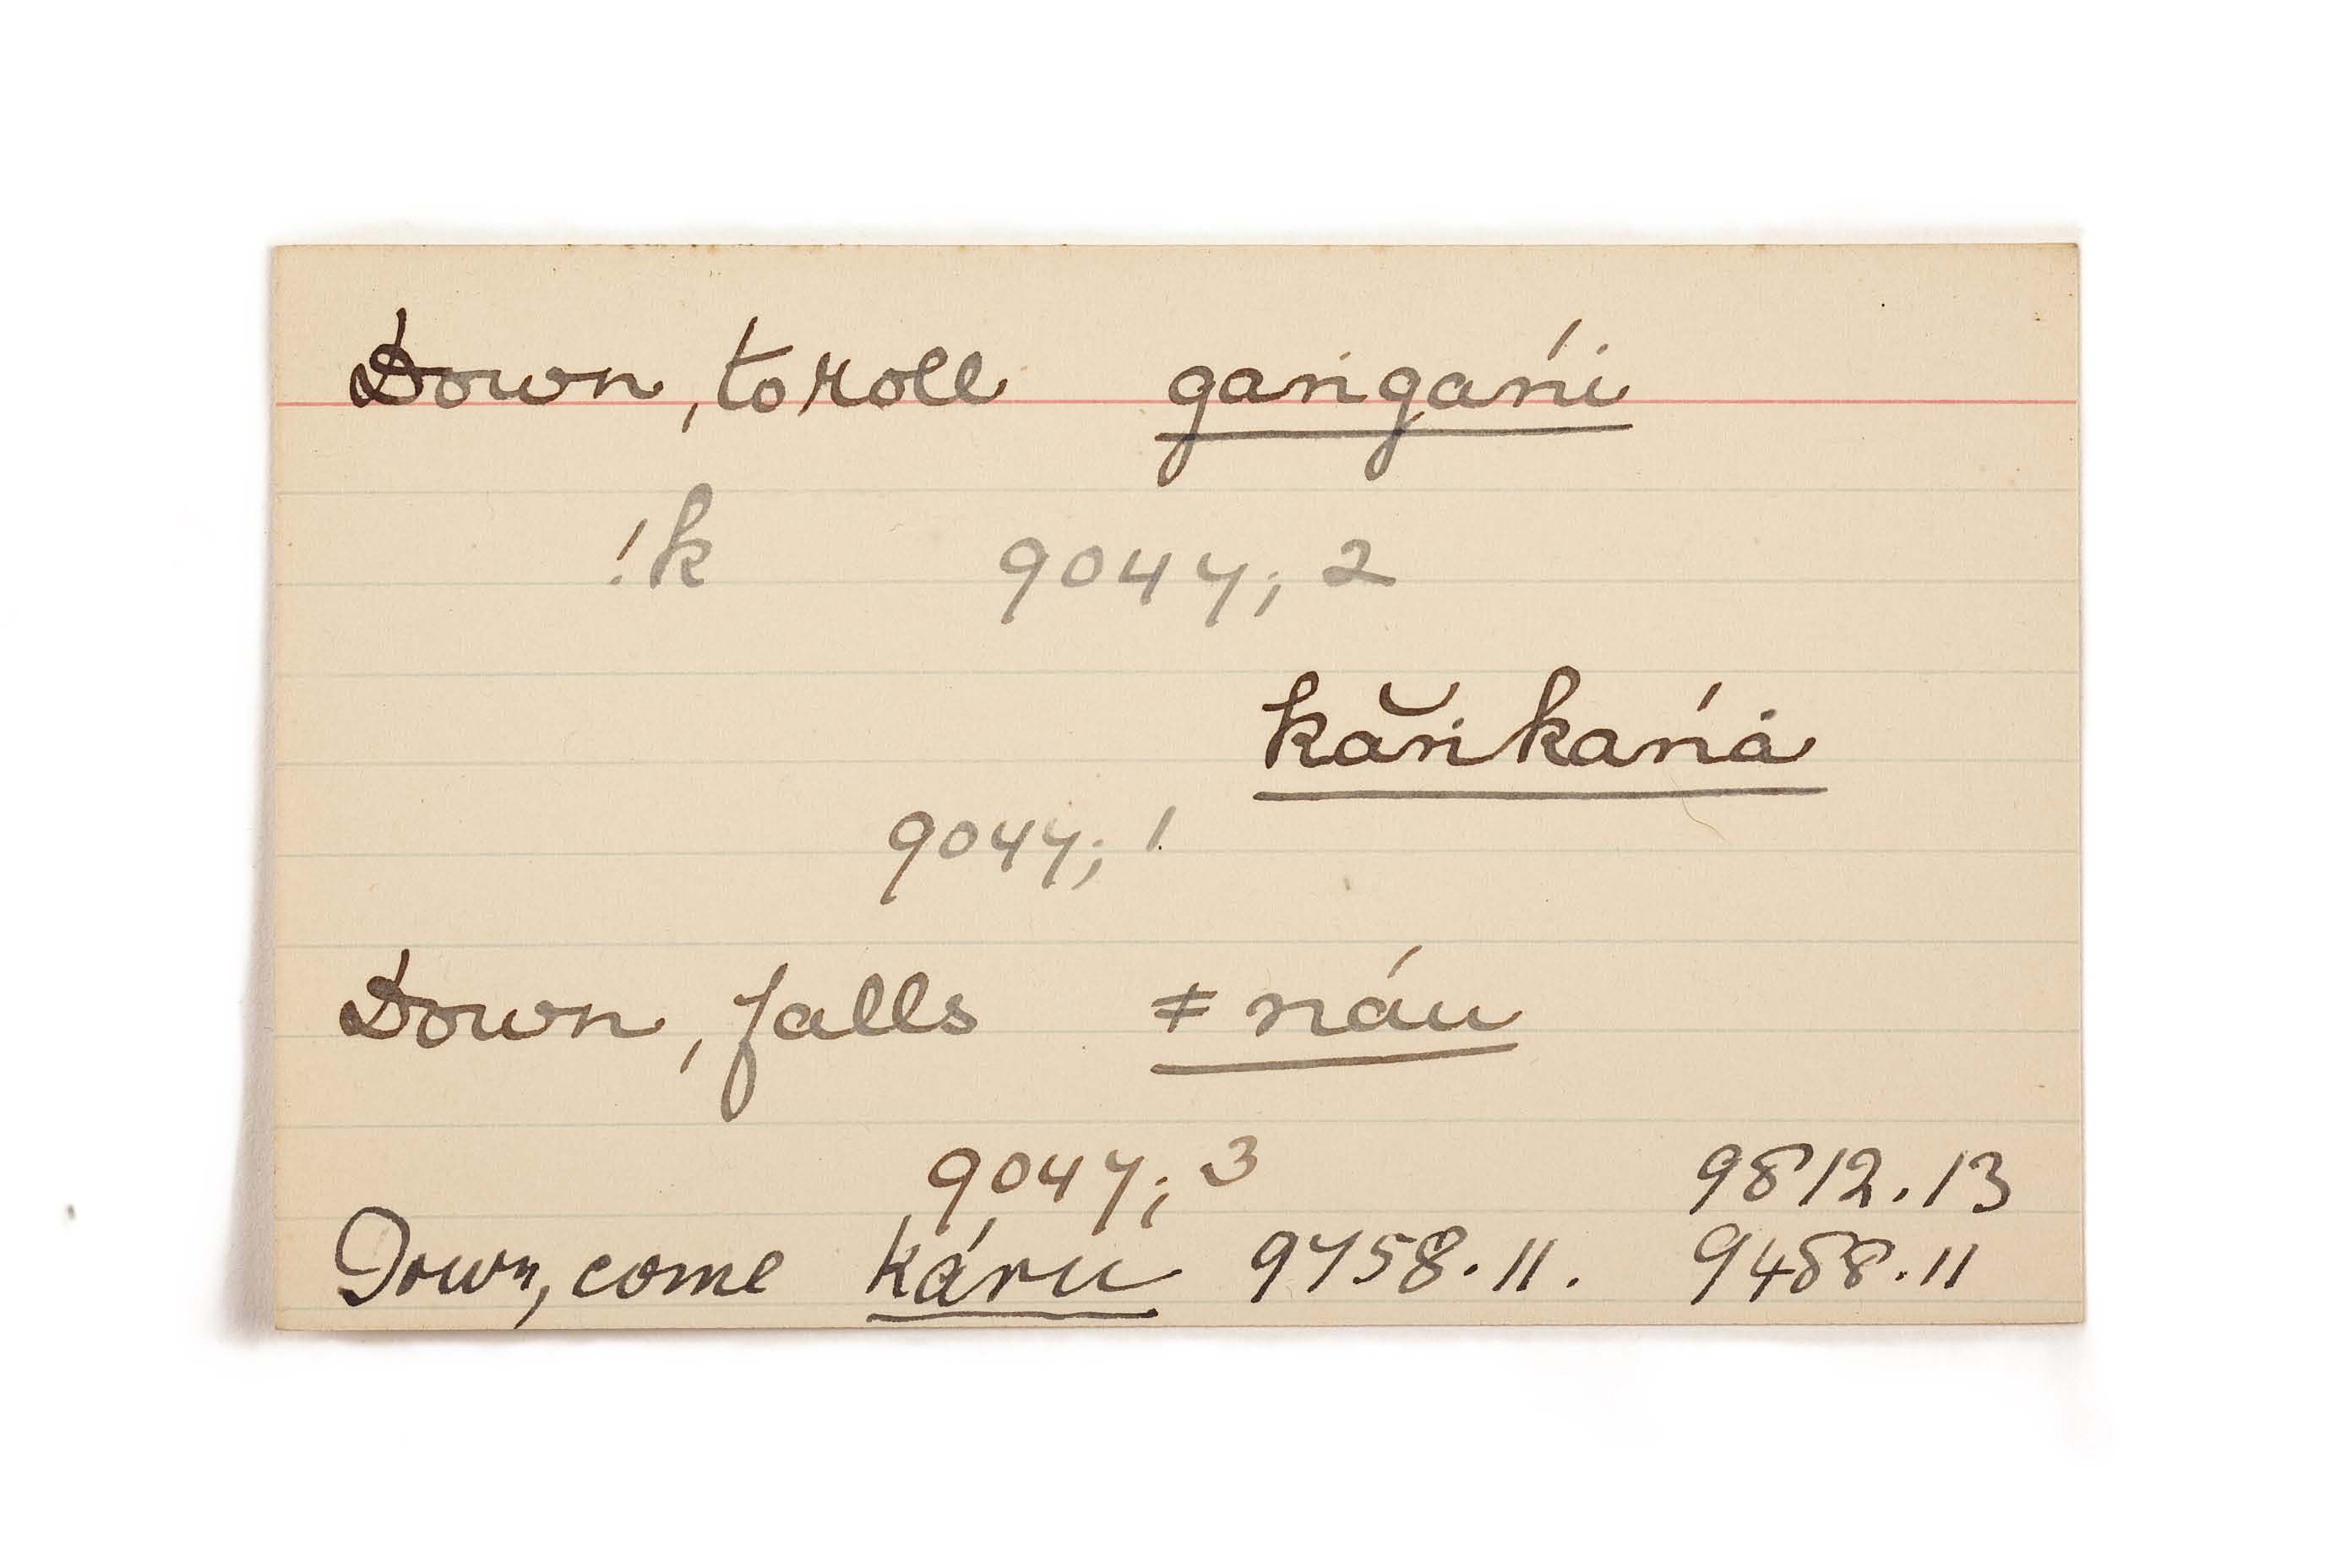 Down, to roll gaṅgaṅi
!k 9047; 2
kăṅkaṅa
9047; 1
Down, falls ǂnáu
9047; 3 9812.13
Down, come káru 9758.11. 9488.11